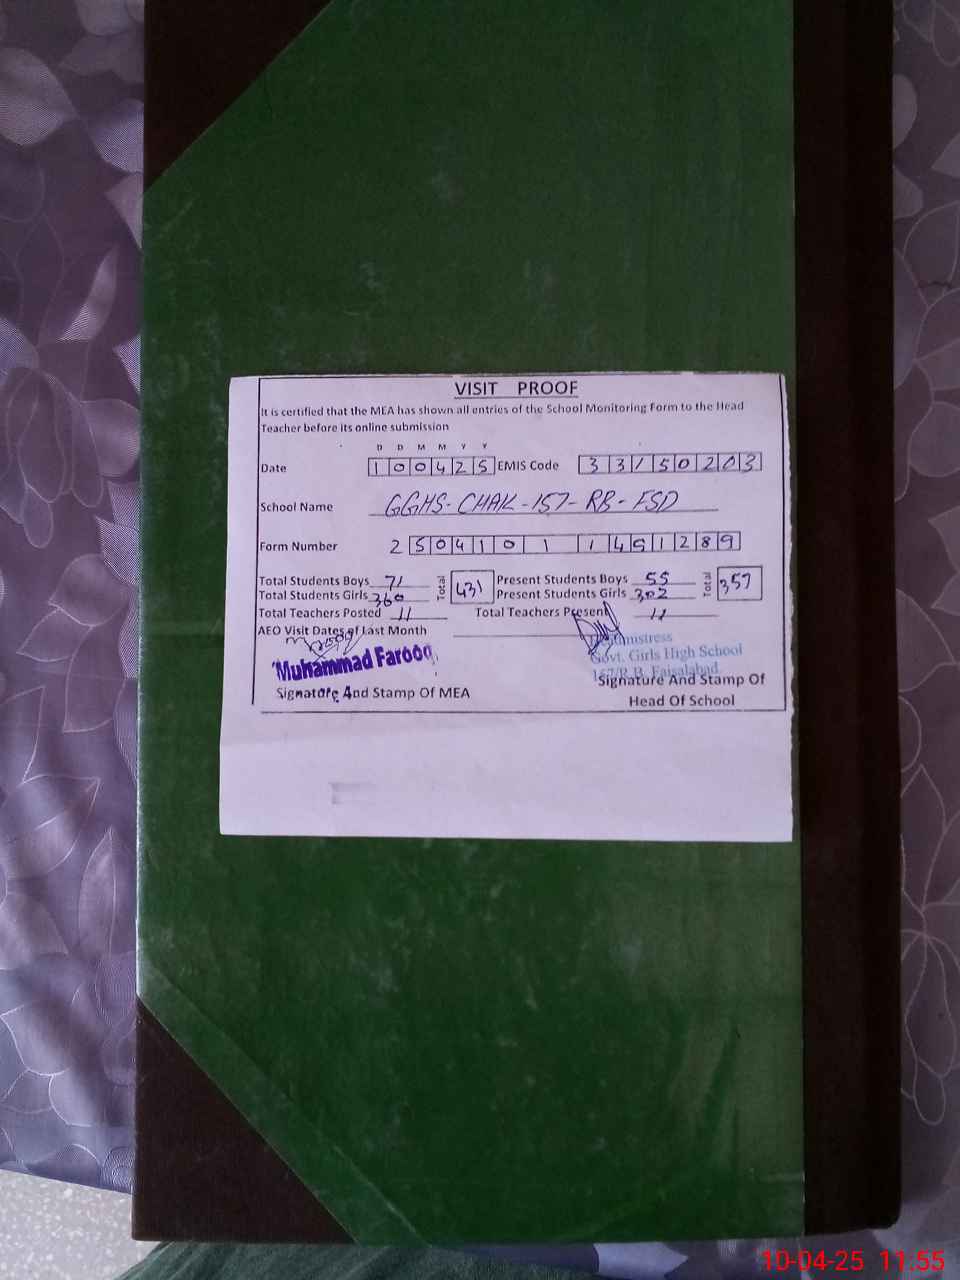 VISIT PROOF
It is certified that the MEA has shown all entries of the School Monitoring Form to the Head
Teacher before its online submission
D D M M Y Y
Date 100425 EMIS Code 33150203
School Name GGHS-CHAK-157-RB-FSD
Form Number 2504101 1491289
Total Students Boys 71 Total 431 Present Students Boys 55 Total 357
Total Students Girls 360 Present Students Girls 302
Total Teachers Posted 11 Total Teachers Present 11
AEO Visit Dates of Last Month
Muhammad Farooq
Headmistress
Govt. Girls High School
157/R.B. Faisalabad
Signature And Stamp Of MEA
Signature And Stamp Of
Head Of School
10-04-25 11:55